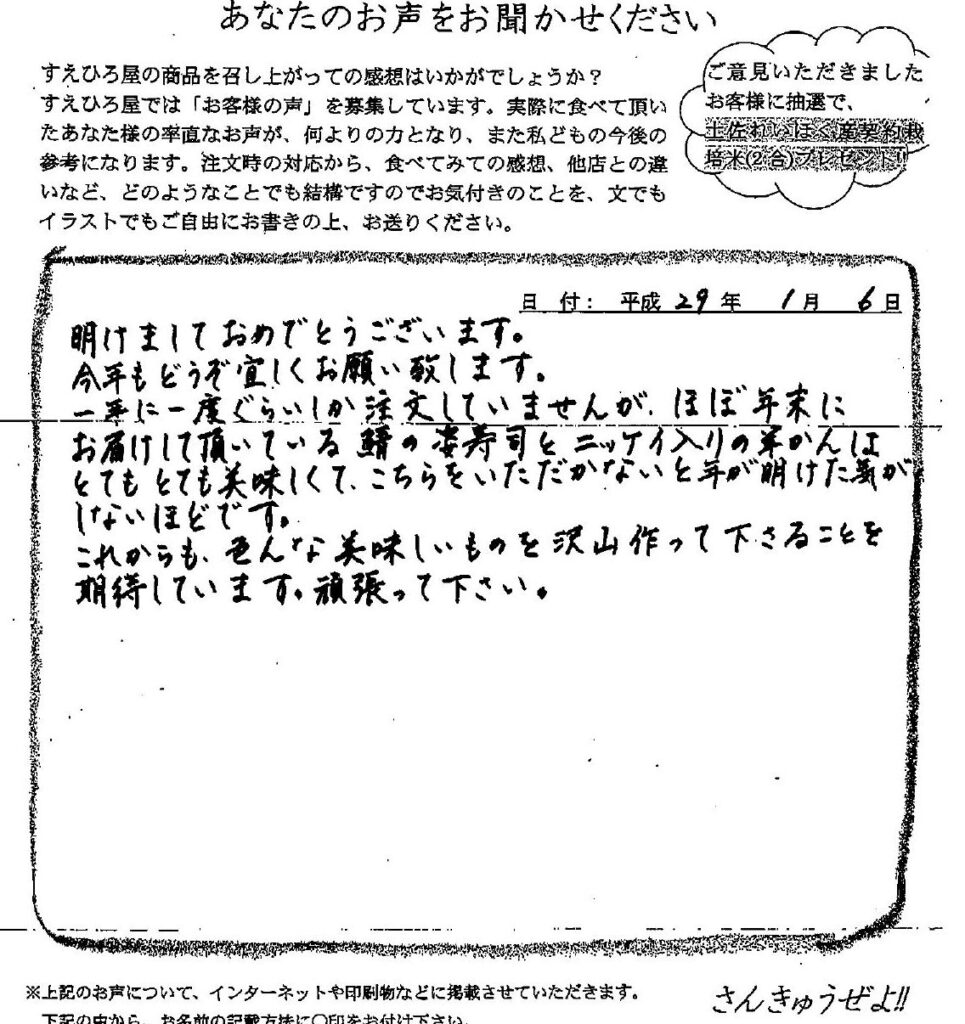 あなたのお声をお聞かせください
すえひろ屋の商品を召し上がっての感想はいかがでしょうか？
すえひろ屋では「お客様の声」を募集しています。実際に食べて頂い
たあなた様の率直なお声が、何よりの力となり、また私どもの今後の
参考になります。注文時の対応から、食べてみての感想、他店との違
いなど、どのようなことでも結構ですのでお気付きのことを、文でも
イラストでもご自由にお書きの上、お送りください。
ご意見いただきました
お客様に抽選で、
土佐れいほく産契約栽
培米(2合)プレゼント!!
日付： 平成 29 年 1 月 6 日
明けましておめでとうございます。
今年もどうぞ宜しくお願い致します。
一年に一度ぐらいしか注文していませんが、ほぼ年末に
お届けして頂いている鯖の姿寿司とニッケイ入りの羊かんは
とてもとても美味しくて、こちらをいただかないと年が明けた気が
しないほどです。
これからも、色んな美味しいものを沢山作って下さることを
期待しています。頑張って下さい。
※上記のお声について、インターネットや印刷物などに掲載させていただきます。
下記の中から、お名前の記載方法に〇印をお付け下さい。
さんきゅうぜよ!!